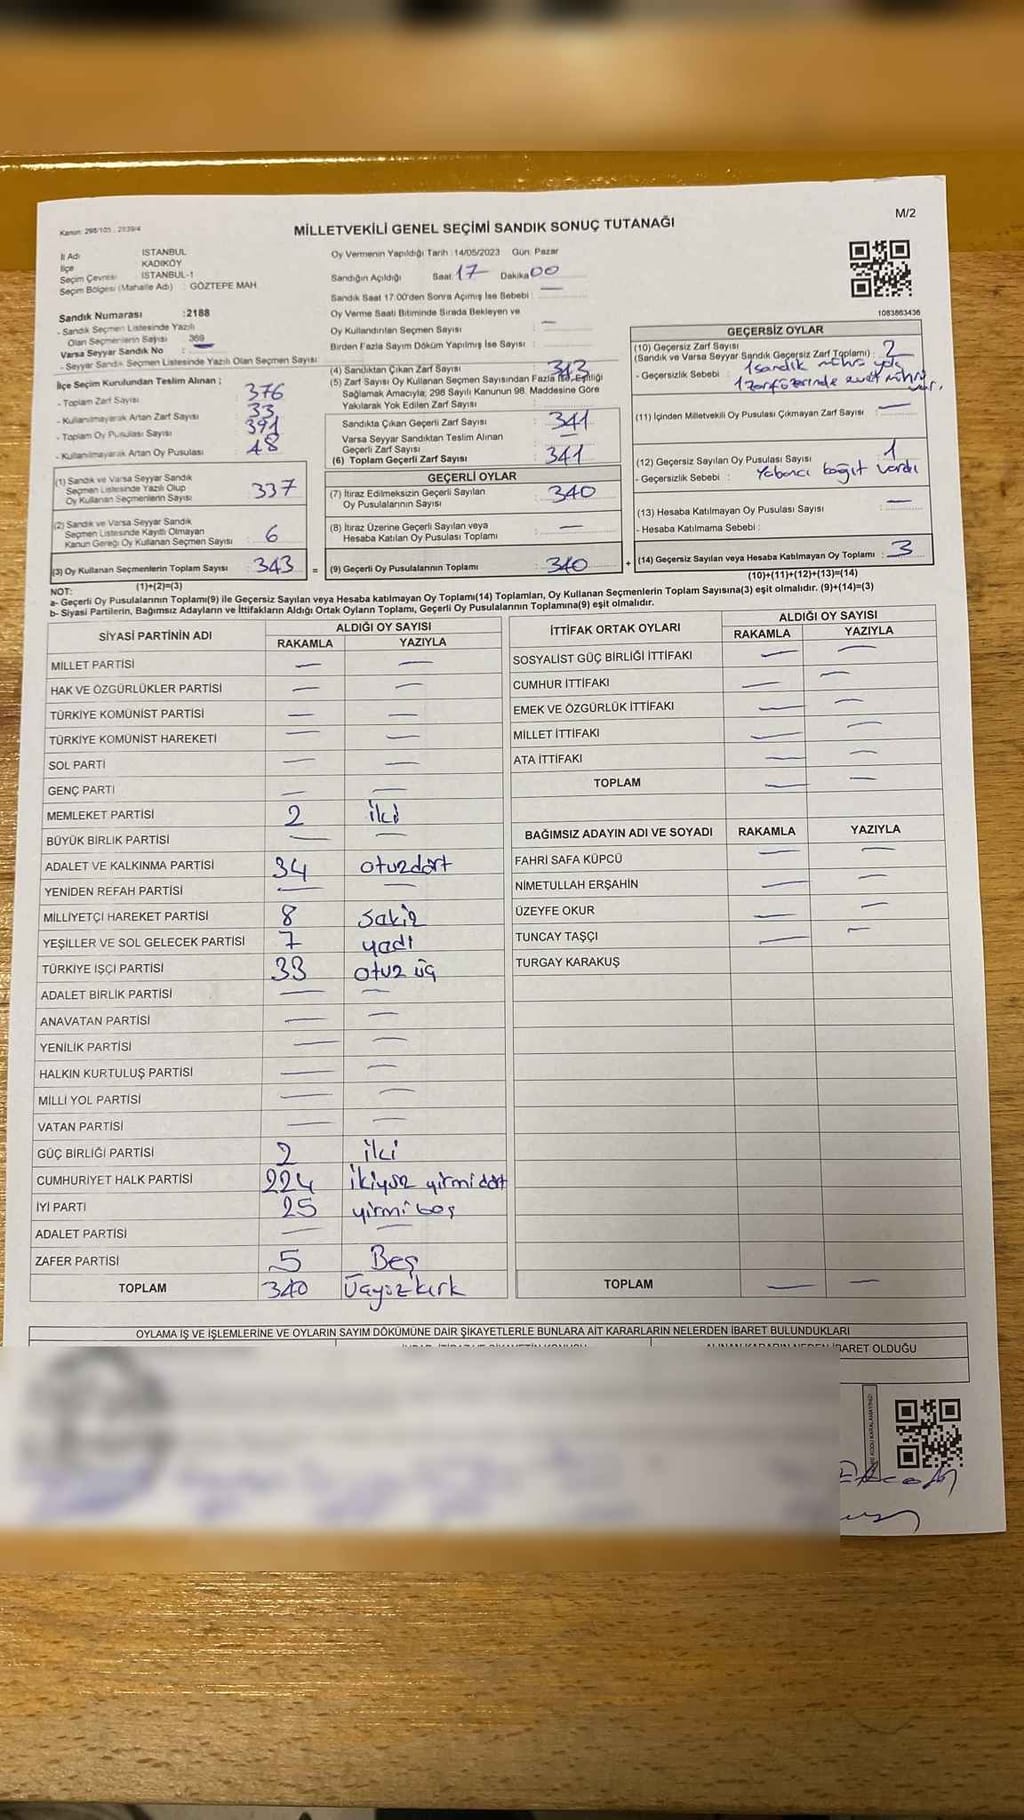 M/2
Kanun: 298/105 , 2839/4
MİLLETVEKİLİ GENEL SEÇİMİ SANDIK SONUÇ TUTANAĞI
İl Adı İSTANBUL
İlçe KADIKÖY
Seçim Çevresi İSTANBUL-1
Seçim Bölgesi (Mahalle Adı) : GÖZTEPE MAH
Sandık Numarası :2188
- Sandık Seçmen Listesinde Yazılı
Olan Seçmenlerin Sayısı 369
Varsa Seyyar Sandık No :
- Seyyar Sandık Seçmen Listesinde Yazılı Olan Seçmen Sayısı:
Oy Vermenin Yapıldığı Tarih :14/05/2023 Gün: Pazar
Sandığın Açıldığı Saat: 17 Dakika 00
Sandık Saat 17:00'den Sonra Açılmış İse Sebebi : —
Oy Verme Saati Bitiminde Sırada Bekleyen ve
Oy Kullandırılan Seçmen Sayısı : —
Birden Fazla Sayım Döküm Yapılmış İse Sayısı :
1083863436
İlçe Seçim Kurulundan Teslim Alınan ;
- Toplam Zarf Sayısı : 376
- Kullanılmayarak Artan Zarf Sayısı : 33
- Toplam Oy Pusulası Sayısı : 391
- Kullanılmayarak Artan Oy Pusulası : 48
(1) Sandık ve Varsa Seyyar Sandık
Seçmen Listesinde Yazılı Olup
Oy Kullanan Seçmenlerin Sayısı : 337
(2) Sandık ve Varsa Seyyar Sandık
Seçmen Listesinde Kayıtlı Olmayan
Kanun Gereği Oy Kullanan Seçmen Sayısı : 6
(3) Oy Kullanan Seçmenlerin Toplam Sayısı : 343
(1)+(2)=(3)
(4) Sandıktan Çıkan Zarf Sayısı : 343
(5) Zarf Sayısı Oy Kullanan Seçmen Sayısından Fazla İse, Eşitliği
Sağlamak Amacıyla, 298 Sayılı Kanunun 98. Maddesine Göre
Yakılarak Yok Edilen Zarf Sayısı :
Sandıkta Çıkan Geçerli Zarf Sayısı : 341
Varsa Seyyar Sandıktan Teslim Alınan
Geçerli Zarf Sayısı : —
(6) Toplam Geçerli Zarf Sayısı : 341
GEÇERLİ OYLAR
(7) İtiraz Edilmeksizin Geçerli Sayılan
Oy Pusulalarının Sayısı : 340
(8) İtiraz Üzerine Geçerli Sayılan veya
Hesaba Katılan Oy Pusulası Toplamı : —
= (9) Geçerli Oy Pusulalarının Toplamı : 340
GEÇERSİZ OYLAR
(10) Geçersiz Zarf Sayısı
(Sandık ve Varsa Seyyar Sandık Geçersiz Zarf Toplamı) : 2
- Geçersizlik Sebebi : 1 sandık mührü yok
1 zarf üzerinde evet mührü var.
(11) İçinden Milletvekili Oy Pusulası Çıkmayan Zarf Sayısı : —
(12) Geçersiz Sayılan Oy Pusulası Sayısı : 1
- Geçersizlik Sebebi : Yabancı kağıt vardı
(13) Hesaba Katılmayan Oy Pusulası Sayısı : —
- Hesaba Katılmama Sebebi :
+ (14) Geçersiz Sayılan veya Hesaba Katılmayan Oy Toplamı : 3
(10)+(11)+(12)+(13)=(14)
NOT:
a- Geçerli Oy Pusulalarının Toplamı(9) ile Geçersiz Sayılan veya Hesaba katılmayan Oy Toplamı(14) Toplamları, Oy Kullanan Seçmenlerin Toplam Sayısına(3) eşit olmalıdır. (9)+(14)=(3)
b- Siyasi Partilerin, Bağımsız Adayların ve İttifakların Aldığı Ortak Oyların Toplamı, Geçerli Oy Pusulalarının Toplamına(9) eşit olmalıdır.
SİYASİ PARTİNİN ADI ALDIĞI OY SAYISI
RAKAMLA YAZIYLA
MİLLET PARTİSİ — —
HAK VE ÖZGÜRLÜKLER PARTİSİ — —
TÜRKİYE KOMÜNİST PARTİSİ — —
TÜRKİYE KOMÜNİST HAREKETİ — —
SOL PARTİ — —
GENÇ PARTİ — —
MEMLEKET PARTİSİ 2 iki
BÜYÜK BİRLİK PARTİSİ — —
ADALET VE KALKINMA PARTİSİ 34 otuzdört
YENİDEN REFAH PARTİSİ — —
MİLLİYETÇİ HAREKET PARTİSİ 8 sekiz
YEŞİLLER VE SOL GELECEK PARTİSİ 7 yedi
TÜRKİYE İŞÇİ PARTİSİ 33 otuz üç
ADALET BİRLİK PARTİSİ — —
ANAVATAN PARTİSİ — —
YENİLİK PARTİSİ — —
HALKIN KURTULUŞ PARTİSİ — —
MİLLİ YOL PARTİSİ — —
VATAN PARTİSİ — —
GÜÇ BİRLİĞİ PARTİSİ 2 iki
CUMHURİYET HALK PARTİSİ 224 ikiyüz yirmi dört
İYİ PARTİ 25 yirmi beş
ADALET PARTİSİ — —
ZAFER PARTİSİ 5 Beş
TOPLAM 340 Üçyüz kırk
İTTİFAK ORTAK OYLARI ALDIĞI OY SAYISI
RAKAMLA YAZIYLA
SOSYALİST GÜÇ BİRLİĞİ İTTİFAKI — —
CUMHUR İTTİFAKI — —
EMEK VE ÖZGÜRLÜK İTTİFAKI — —
MİLLET İTTİFAKI — —
ATA İTTİFAKI — —
TOPLAM — —
BAĞIMSIZ ADAYIN ADI VE SOYADI RAKAMLA YAZIYLA
FAHRİ SAFA KÜPCÜ — —
NİMETULLAH ERŞAHİN — —
ÜZEYFE OKUR — —
TUNCAY TAŞÇI — —
TURGAY KARAKUŞ
TOPLAM — —
OYLAMA İŞ VE İŞLEMLERİNE VE OYLARIN SAYIM DÖKÜMÜNE DAİR ŞİKAYETLERLE BUNLARA AİT KARARLARIN NELERDEN İBARET BULUNDUKLARI
İBARET OLDUĞU